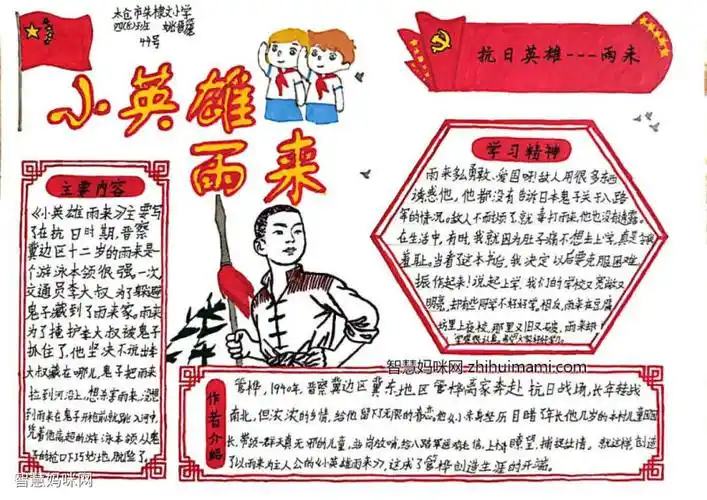 太仓市朱棣文小学
49号
小英雄
雨来
抗日英雄---雨来
主要内容
《小英雄雨来》主要写
了在抗日时期,晋察
冀边区十二岁的雨来是
个游泳本领很强,一次
交通员李大叔为了躲避
鬼子藏到了雨来家。雨来
为了掩护李大叔被鬼子
抓住了,他坚决不说出李
大叔藏在哪儿,鬼子把雨来
拉到河沿上,想杀害雨来,没想
到雨来在鬼子开枪前就跳入河中,
凭着他高超的游泳本领从鬼
子的枪口下巧妙地脱险了。
学习精神
雨来多么勇敢、爱国呀!敌人用很多东西
诱惑他,他都没有告诉日本鬼子关于八路
军的情况。敌人不耐烦了就毒打雨来,他也没有透露。
在生活中,有时,我就因为肚子痛不想去上学,真是
羞耻。当看了这本书后,我决定以后要克服困难,
振作起来!说起上学,我们的学校又宽敞又
明亮,却有些同学不好好学,相反,雨来在豆腐
坊里上夜校,那里又旧又破,雨来却
智慧妈咪网-zhihuimami.com
作者介绍
管桦,1940年,晋察冀边区冀东地区管桦离家奔赴抗日战场,长年转战
南北,但浓浓的乡情,给他留下无限的眷恋,
长,带领一群天真无邪的儿童,站岗放哨,给八路军送鸡毛信,上树瞭望,捕捉敌情。就这样创造
了以雨来为主人公的《小英雄雨来》,这成了管桦创造生涯的开端。
智慧妈咪网